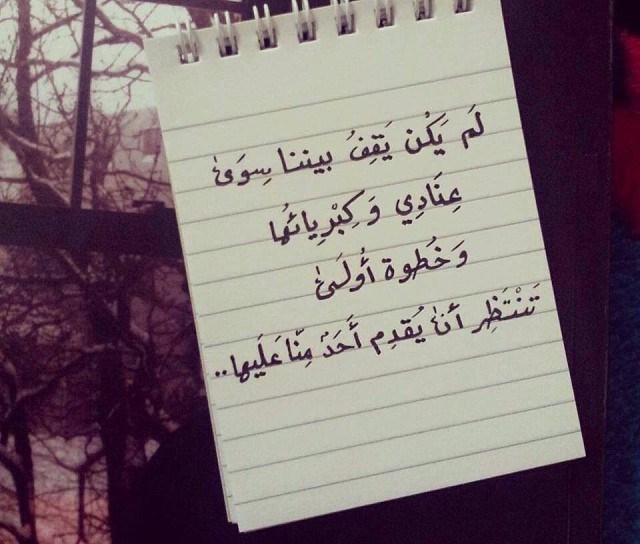 لَم يَكُن يَقِفُ بيننا سِوَىٰ
عِنَادِي وَ كِبْرِيائهُا
وَ خُطوة أُولَىٰ
تَنْتَظِر أنْ يُقدِم أَحَدٌ مِنّا عَلَيها..